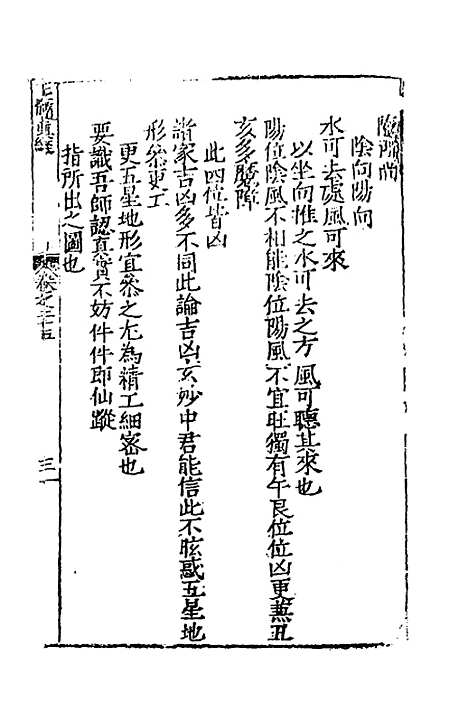 陰陽向
陰向陽向
水可去處風可來
以坐向推之水可去之方風可聽其來也
陽位陰風不相能陰位陽風不宜旺獨有午艮位位凶更兼丑
亥多騰障
此四位皆凶
諸家吉凶多不同此論吉凶玄妙中君能信此不眩惑五星地
形叅更工
更五星地形宜叅之尤為精工細密也
要識吾師認真實不妨件件即仙蹤
指所出之圖也
真經
卷之三十五
三一